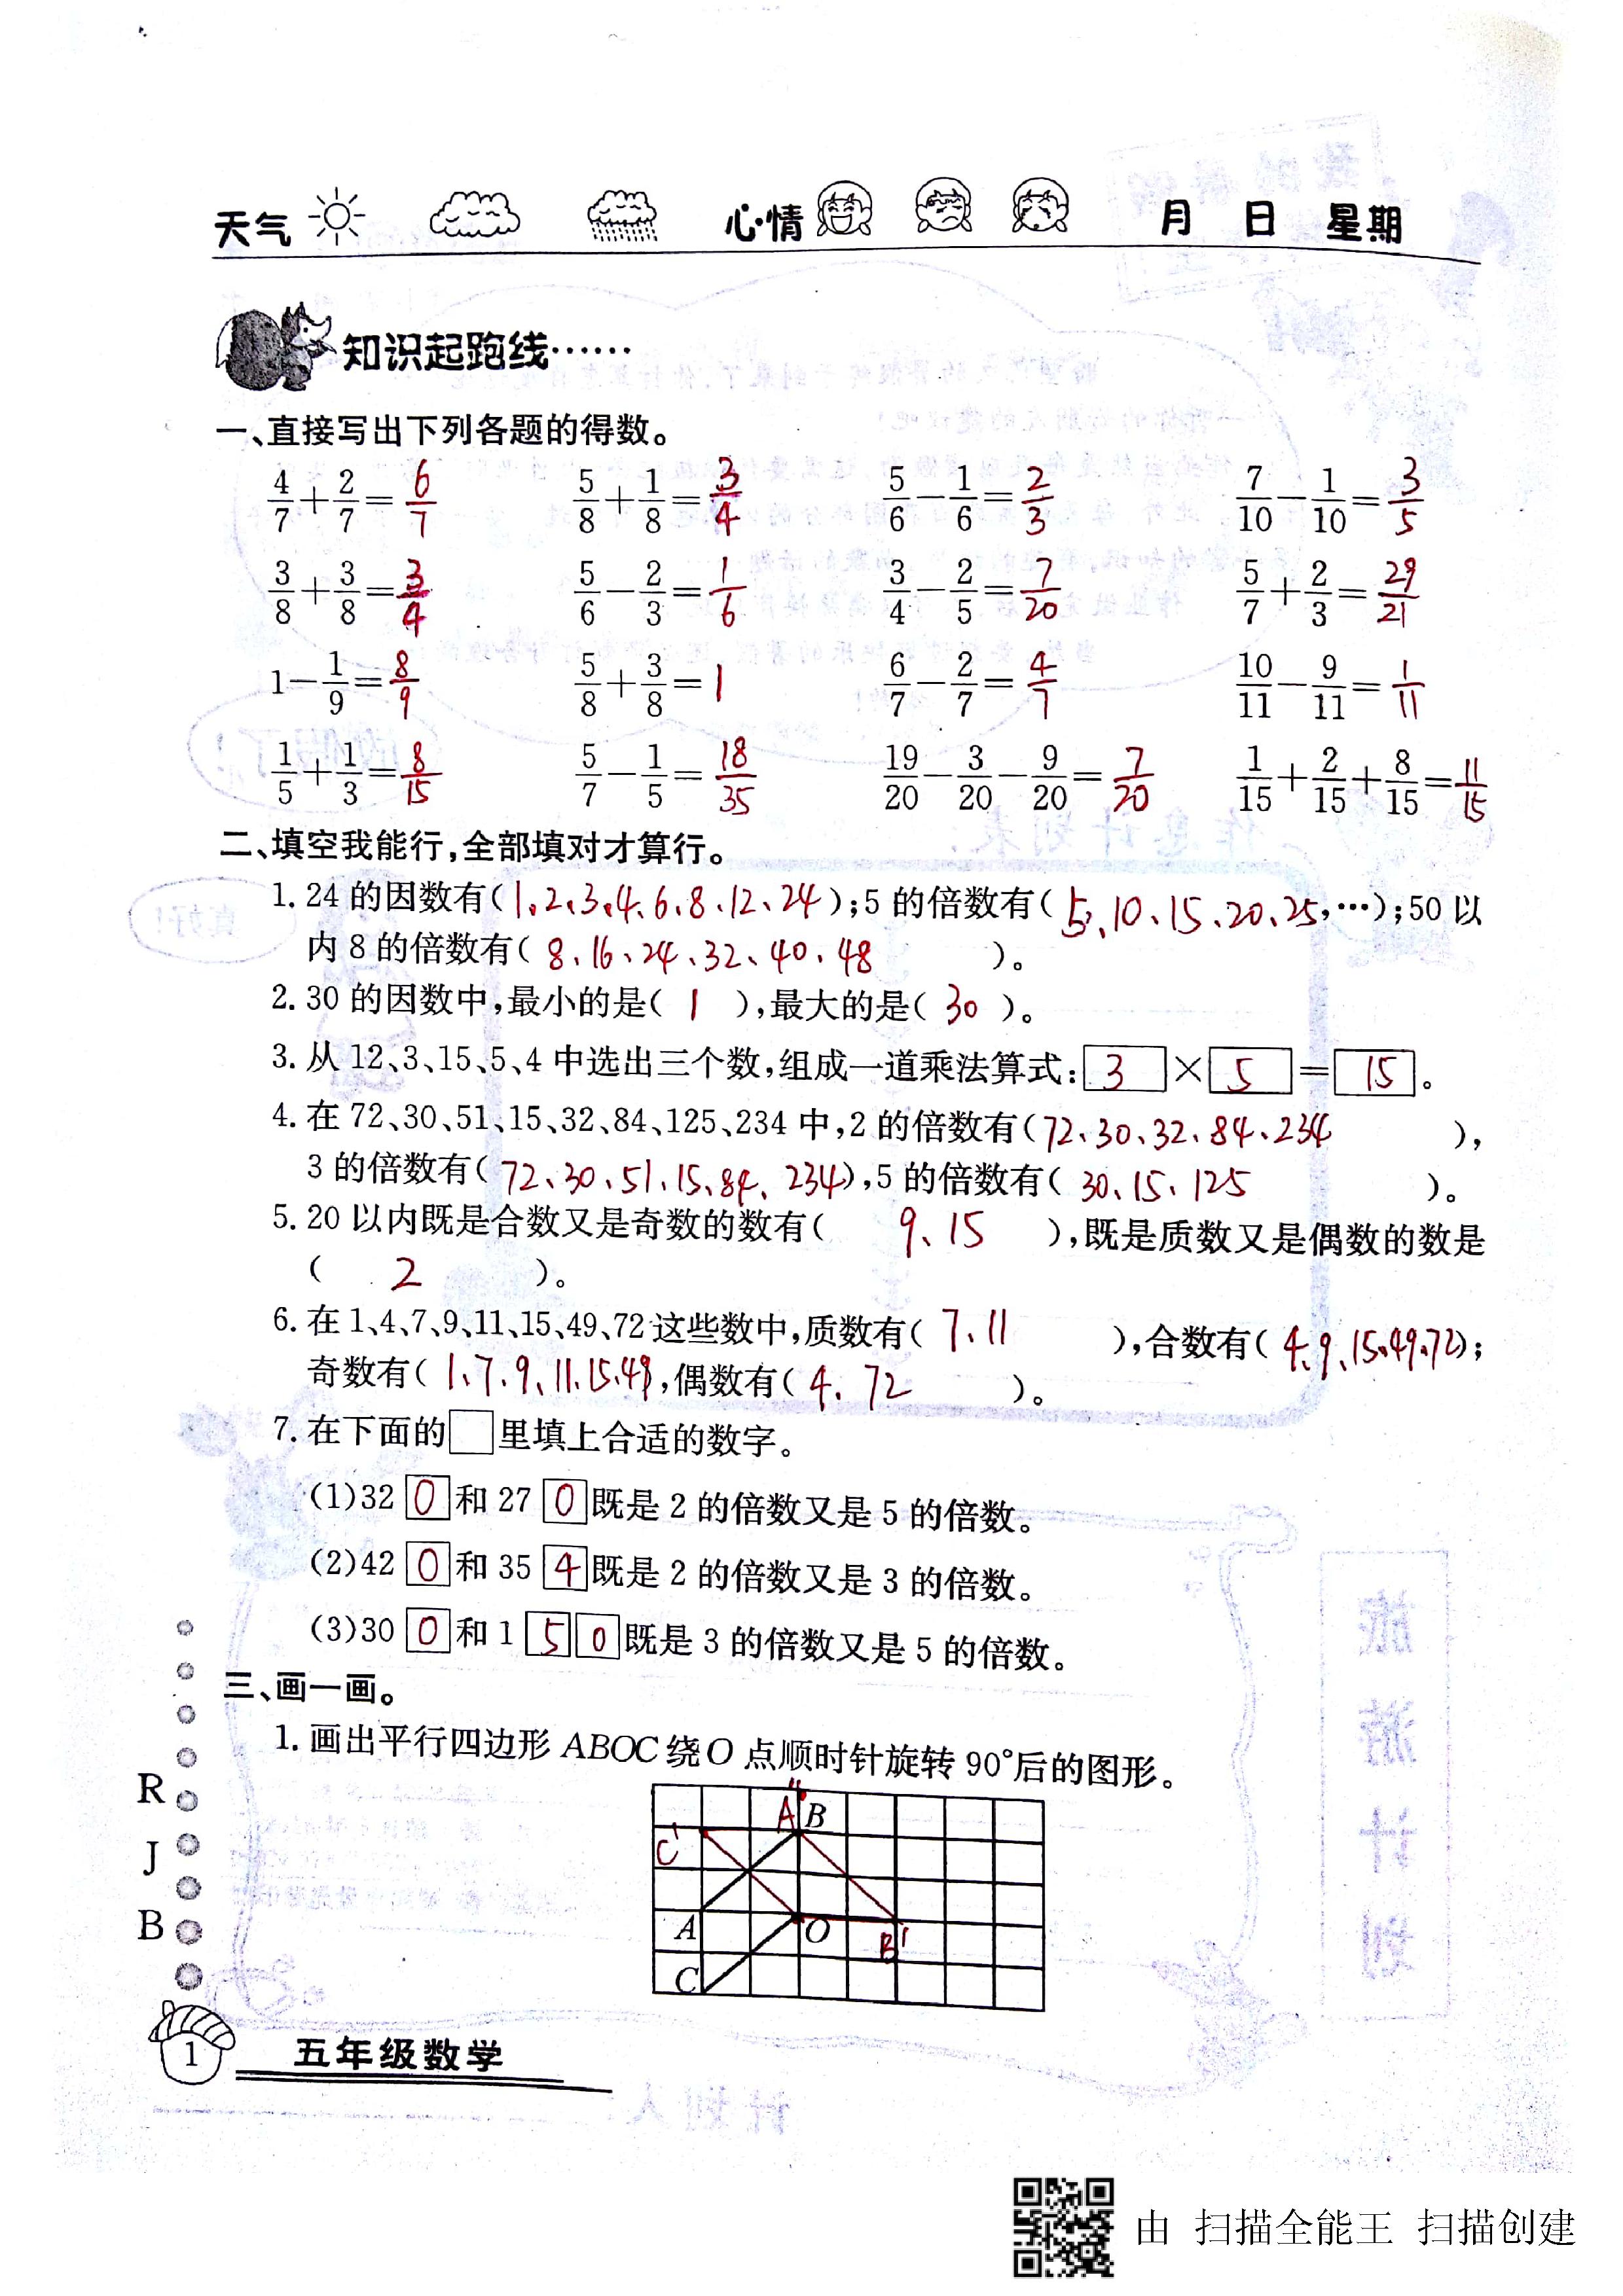 天气 心情 月 日 星期
知识起跑线……
一、直接写出下列各题的得数。
4/7+2/7=6/7 5/8+1/8=3/4 5/6-1/6=2/3 7/10-1/10=3/5
3/8+3/8=3/4 5/6-2/3=1/6 3/4-2/5=7/20 5/7+2/3=29/21
1-1/9=8/9 5/8+3/8=1 6/7-2/7=4/7 10/11-9/11=1/11
1/5+1/3=8/15 5/7-1/5=18/35 19/20-3/20-9/20=7/20 1/15+2/15+8/15=11/15
二、填空我能行,全部填对才算行。
1. 24 的因数有(1、2、3、4、6、8、12、24);5 的倍数有(5、10、15、20、25,…);50 以
内 8 的倍数有(8、16、24、32、40、48)。
2. 30 的因数中,最小的是(1),最大的是(30)。
3. 从 12、3、15、5、4 中选出三个数,组成一道乘法算式:3×5=15。
4. 在 72、30、51、15、32、84、125、234 中,2 的倍数有(72、30、32、84、234),
3 的倍数有(72、30、51、15、84、234),5 的倍数有(30、15、125)。
5. 20 以内既是合数又是奇数的数有(9、15),既是质数又是偶数的数是
(2)。
6. 在 1、4、7、9、11、15、49、72 这些数中,质数有(7、11),合数有(4、9、15、49、72);
奇数有(1、7、9、11、15、49),偶数有(4、72)。
7. 在下面的□里填上合适的数字。
(1)32 0 和 27 0 既是 2 的倍数又是 5 的倍数。
(2)42 0 和 35 4 既是 2 的倍数又是 3 的倍数。
(3)30 0 和 1 5 0 既是 3 的倍数又是 5 的倍数。
三、画一画。
1. 画出平行四边形 ABOC 绕 O 点顺时针旋转 90°后的图形。
A' B
C'
A O B'
C
R
J
B
1 五年级数学
由 扫描全能王 扫描创建